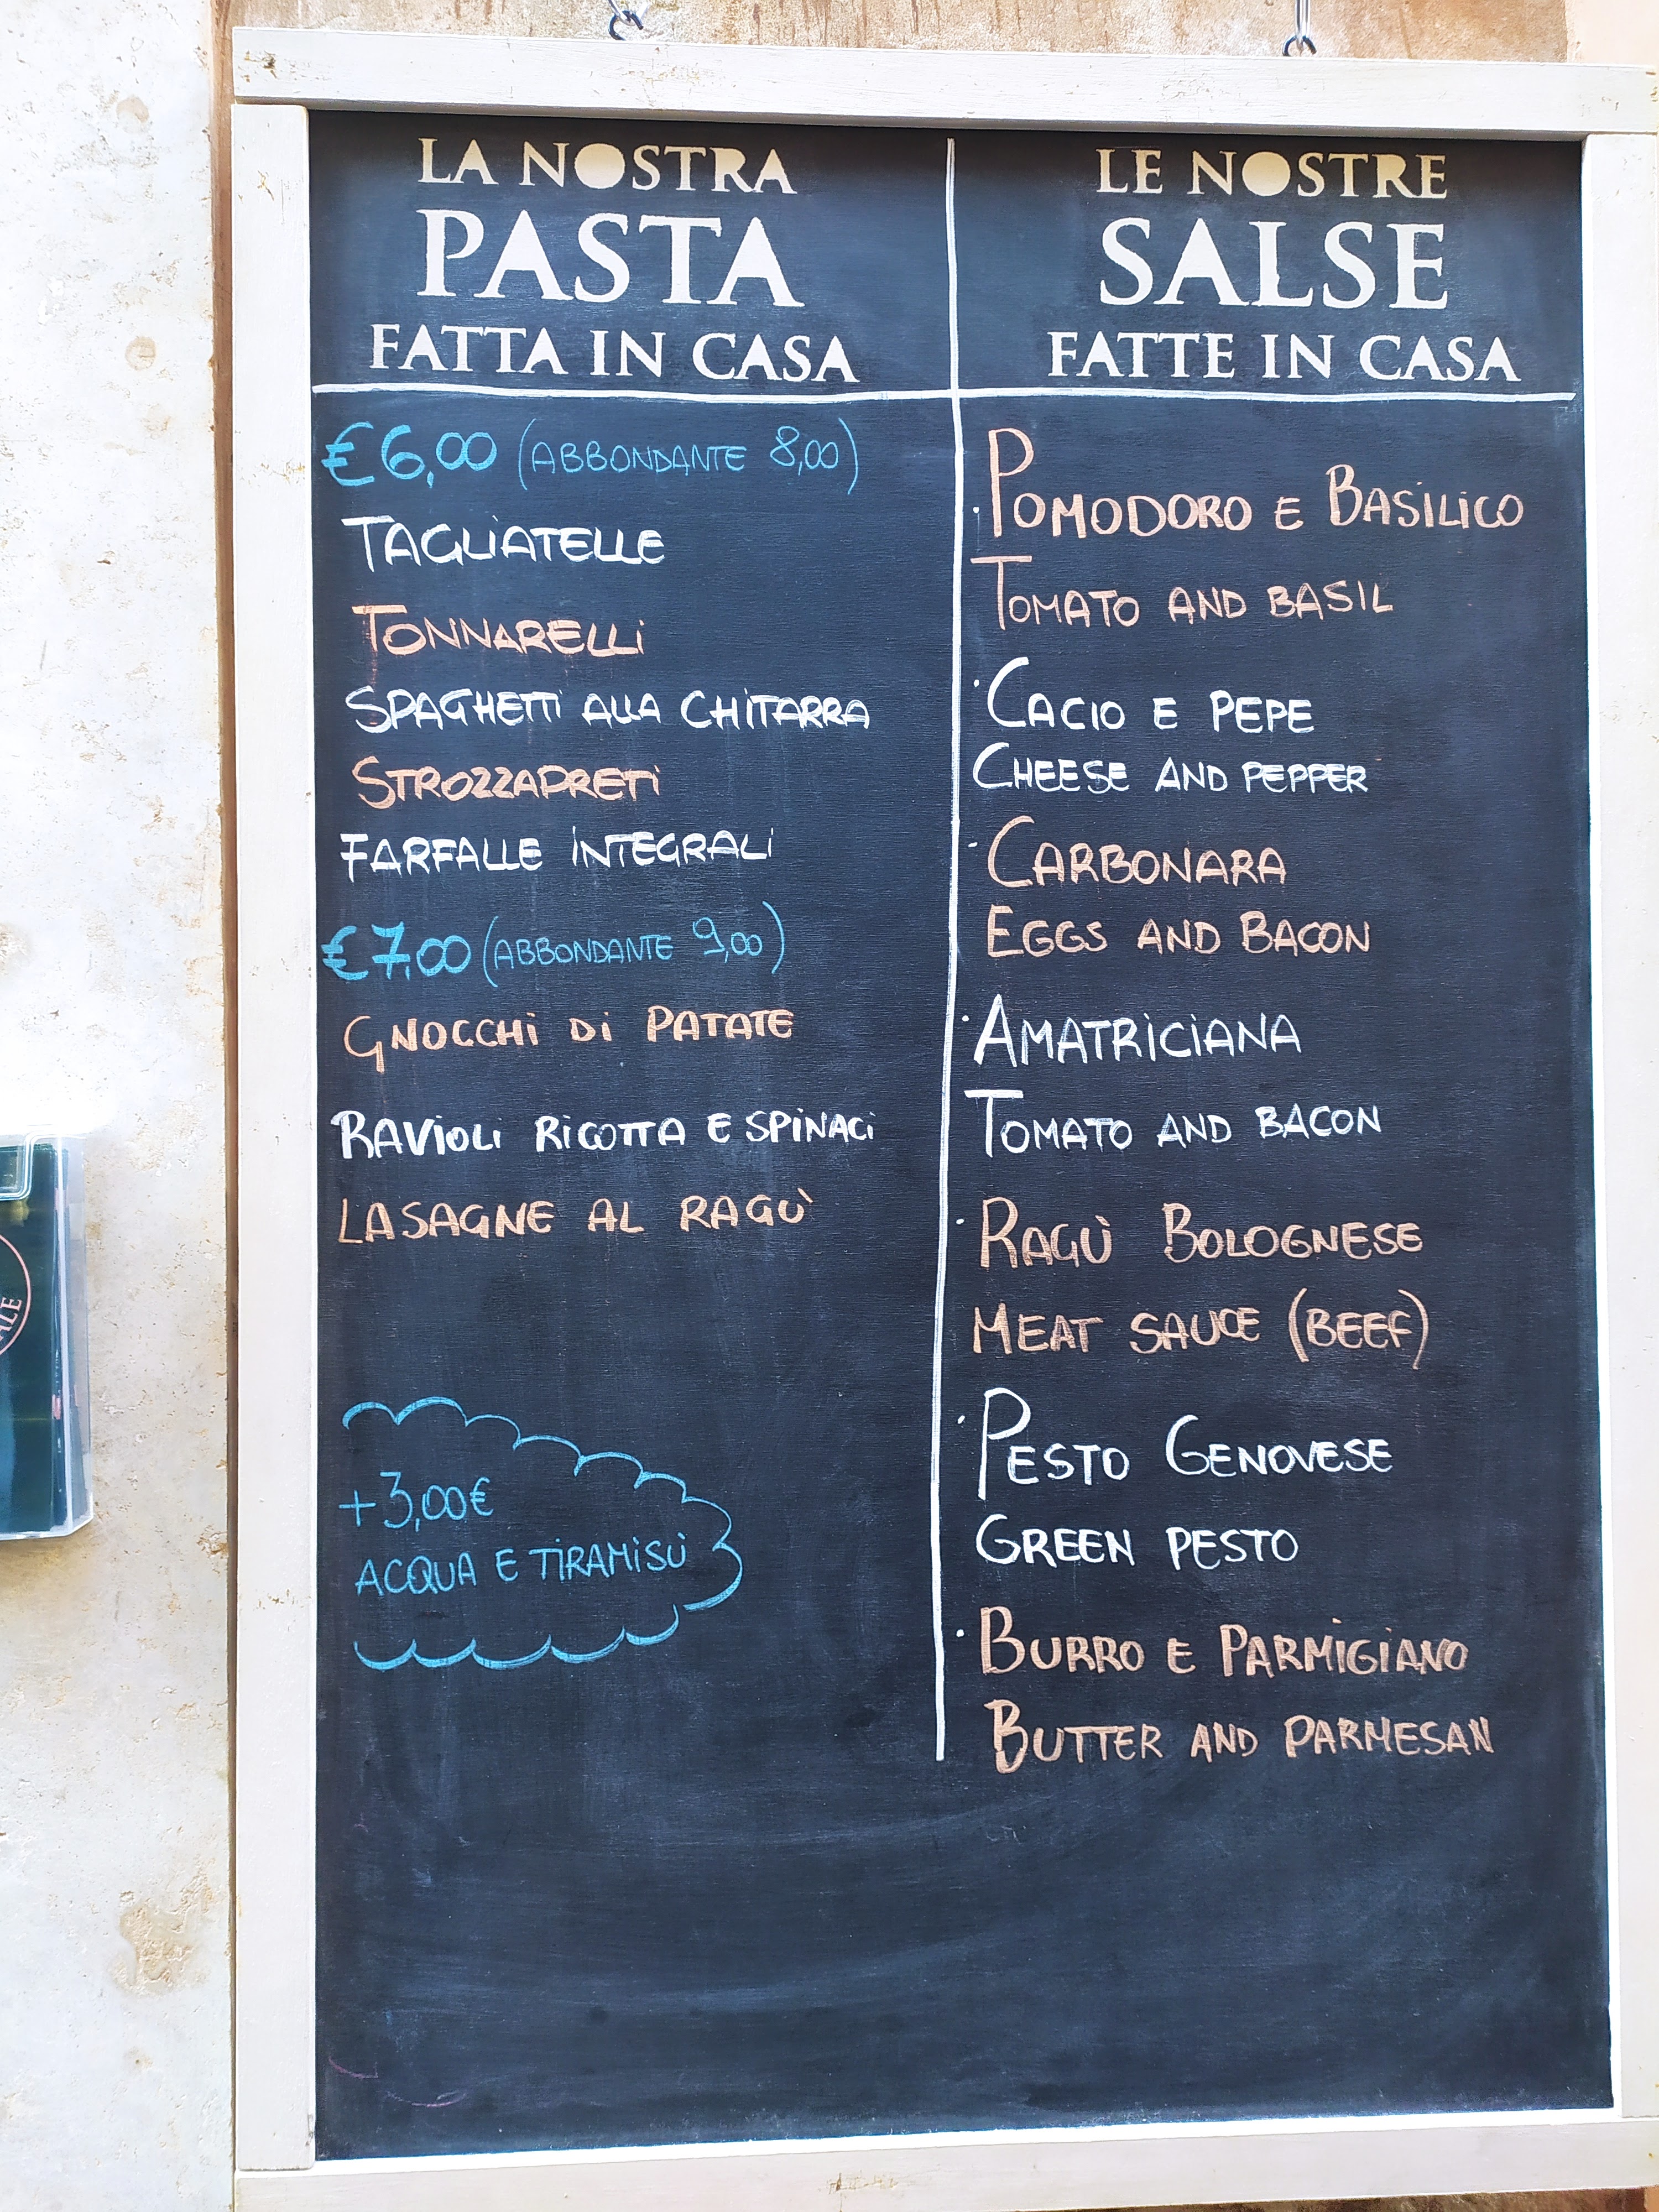 LA NOSTRA
PASTA
FATTA IN CASA
€6,00 (ABBONDANTE 8,00)
TAGLIATELLE
TONNARELLI
SPAGHETTI ALLA CHITARRA
STROZZAPRETI
FARFALLE INTEGRALI
€7,00 (ABBONDANTE 9,00)
GNOCCHI DI PATATE
RAVIOLI RICOTTA E SPINACI
LASAGNE AL RAGÙ
+3,00€
ACQUA E TIRAMISÙ
LE NOSTRE
SALSE
FATTE IN CASA
·POMODORO E BASILICO
TOMATO AND BASIL
·CACIO E PEPE
CHEESE AND PEPPER
·CARBONARA
EGGS AND BACON
·AMATRICIANA
TOMATO AND BACON
·RAGÙ BOLOGNESE
MEAT SAUCE (BEEF)
·PESTO GENOVESE
GREEN PESTO
·BURRO E PARMIGIANO
BUTTER AND PARMESAN